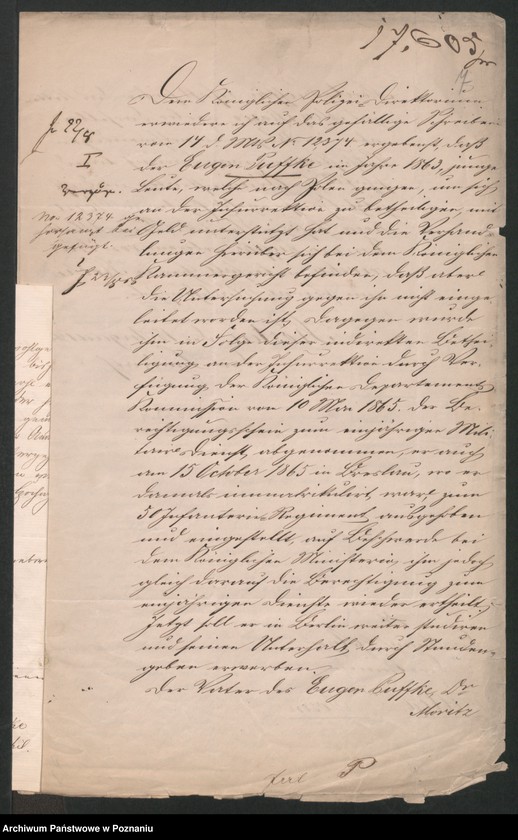 17,605
Dem Königlichen Polizei Direktorium
erwiedere ich auf das gefällige Schreiben
vom 17 d. Mts. N 12374 ergebenst, daß
der Eugen Puffke im Jahre 1863, junge
Leute, welche nach Polen gingen, um sich
an der Insurrektion zu betheiligen, mit
Geld unterstützt hat und die Verhand-
lungen hierüber sich bei dem Königlichen
Kammergericht befinden, daß aber
die Untersuchung gegen ihn nicht einge-
leitet worden ist. Dagegen wurde
ihm in Folge dieser indirekten Bethei-
ligung an der Insurrektion durch Ver-
fügung der Königlichen Departements
Kommission vom 10 Mai 1865. der Be-
rechtigungsschein zum einjährigen Mili-
tair Dienst, abgenommen, er auch
am 15 October 1865 in Breslau, wo er
damals immatrikulirt, war, zum
50 Infanterie Regiment ausgehoben
und eingestellt, auf Beschwerde bei
dem Königlichen Ministerio, ihm jedoch
gleich darauf die Berechtigung zum
einjährigen Dienste wieder ertheilt.
Jetzt soll er in Berlin weiter studiren
und seinen Unterhalt durch Stunden-
geben erwerben.
Der Vater des Eugen Puffke, Dr
Moritz
22/8
I
No. 12374
gefügt.
Archiwum Państwowe w Poznaniu